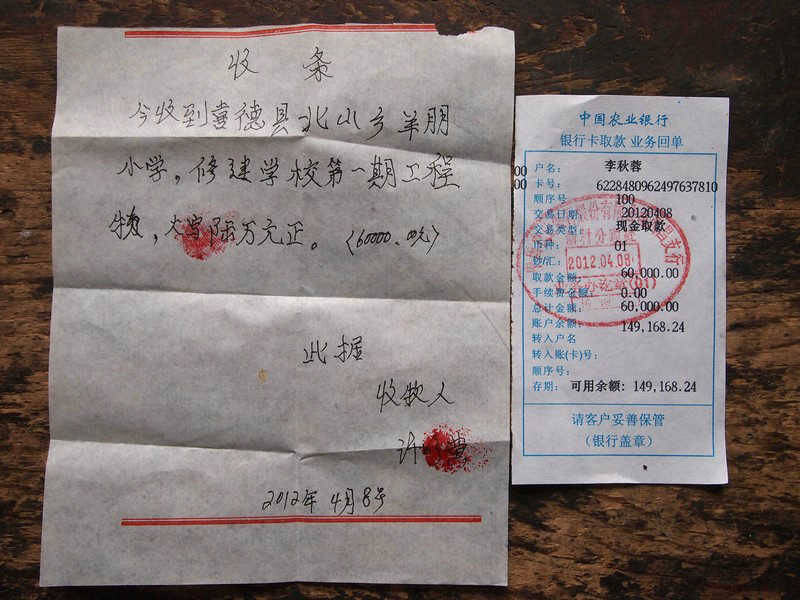 收 条
今收到喜德县北山乡羊朋
小学，修建学校第一期工程
款，大写陆万元正。（60000.00元）
此据
收款人
许
2012年4月8号
中国农业银行
银行卡取款 业务回单
00 户名： 李秋蓉
00 卡号： 6228480962497637810
顺序号： 100
交易日期： 20120408
交易类型： 现金取款
币种： 01
钞/汇：
取款金额： 60,000.00
手续费金额： 0.00
总计金额： 60,000.00
账户余额： 149,168.24
转入户名
转入账(卡)号：
顺序号：
存期： 可用余额：149,168.24
请客户妥善保管
（银行盖章）
2012.04.08